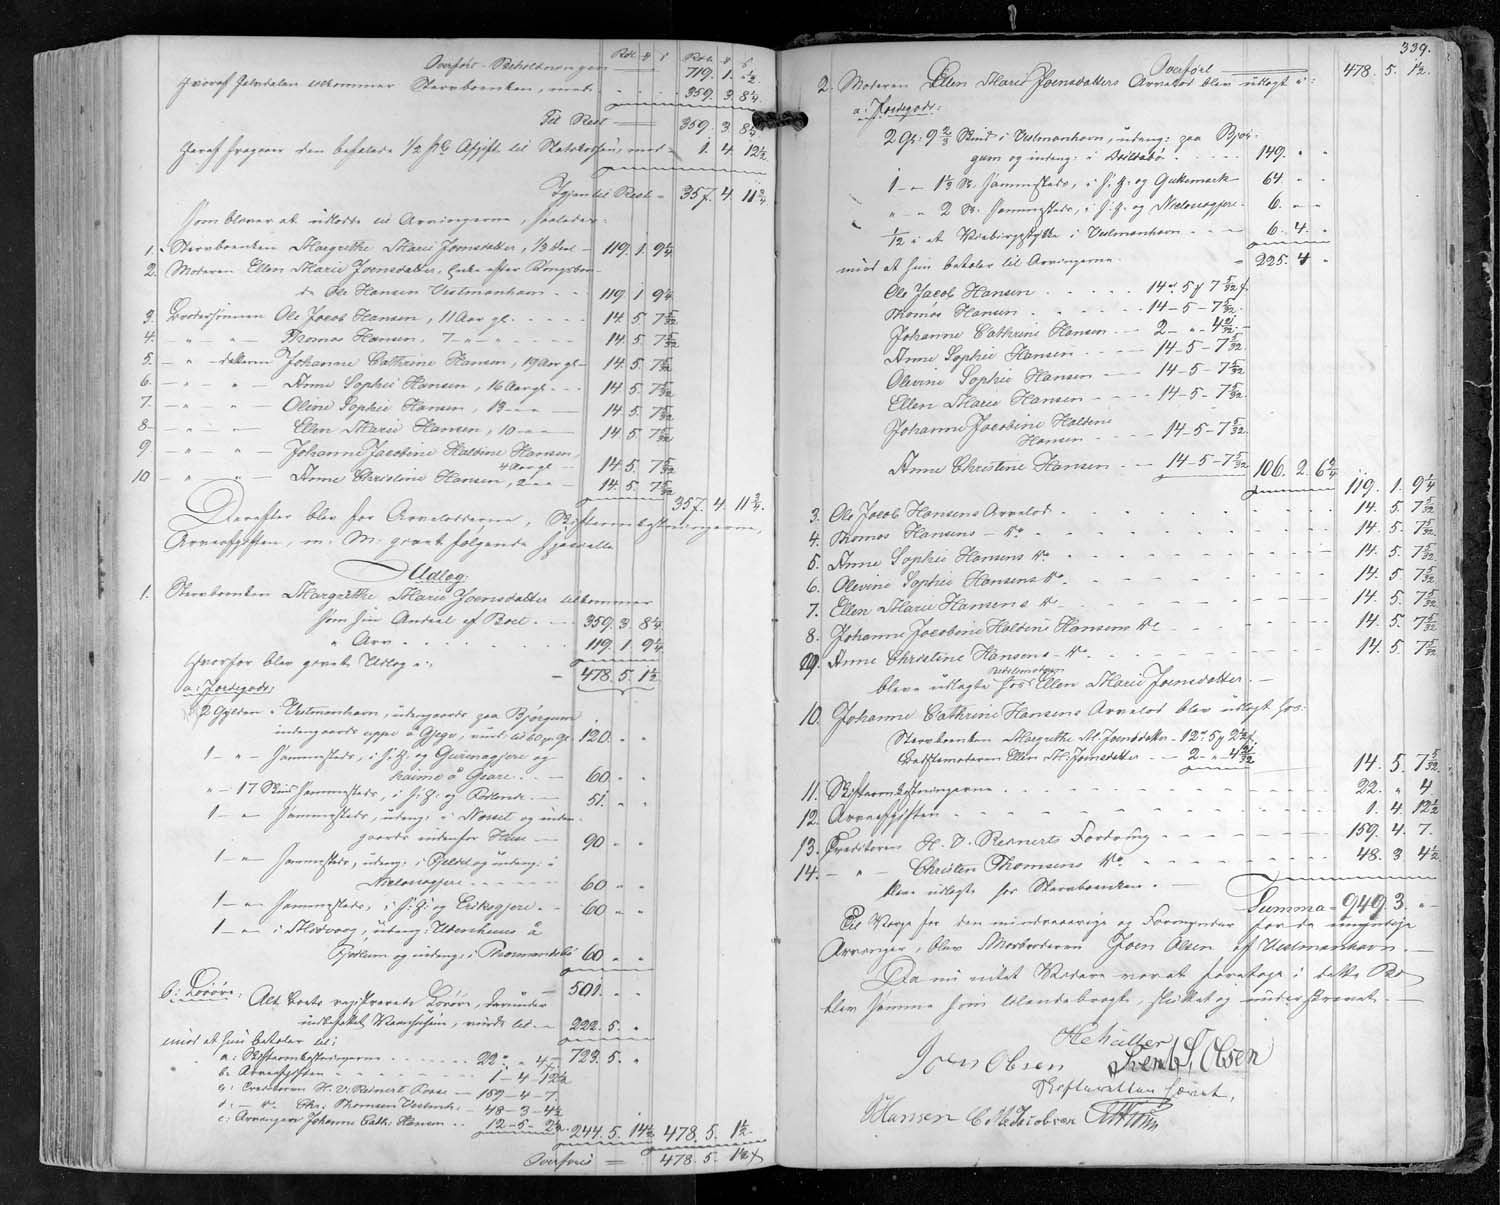 Rdl. # s Rdl. # s
Overført Beholdningen 719. 1. ½
Hvoraf Halvdelen tilkommer Stervboenken, med 359. 3. 8¼
Til Rest 359. 3. 8¼
Heraf fragaar den befalede 1/2 pCt. Afgift til Statskassen, med 1. 4. 12½
Igjen til Rest 357. 4. 11¾
som bliver at udlodde til Arvingerne, saaledes:
1. Stervboenken Margrethe Marie Joensdatter, 1/3 Deel 119. 1. 9¼
2. Moderen Ellen Marie Joensdatter, Enke efter Kongsbon-
de Ole Hansen Vestmanhavn 119. 1. 9¼
3. Brodersønnen Ole Jacob Hansen, 11 Aar gl. 14. 5. 7 5/32
4. — „ — „ — Thomas Hansen, 7 — „ — 14. 5. 7 5/32
5. — „ — datteren Johanne Cathrine Hansen, 19 Aar gl. 14. 5. 7 5/32
6. — „ — „ — Anne Sophie Hansen, 16 Aar gl. 14. 5. 7 5/32
7. — „ — „ — Olivine Sophie Hansen, 13 — „ — 14. 5. 7 5/32
8. — „ — „ — Ellen Marie Hansen, 10 — „ — 14. 5. 7 5/32
9. — „ — „ — Johanne Jacobine Haldine Hansen,
4 Aar gl. 14. 5. 7 5/32
10. — „ — „ — Anne Christine Hansen, 2 „ „ 14. 5. 7 5/32
357. 4. 11¾
Derefter blev for Arvelodderne, Skifteomkostningerne,
Arveafgiften, m. M. gjort følgende specielle
Udlæg:
1. Stervboenken Margrethe Marie Joensdatter tilkommer
som sin Andeel af Boet 359. 3. 8¼
„ Arv 119. 1. 9¼
hvorfor blev gjort Udlæg i: 478. 5. 1½
a: Jordegods:
2 Gylden i Vestmanhavn, udengaards paa Bjørgum
indengaards uppi á Gjegv, vurd. til 60 pr Gl. 120. „ „
1 — „ — sammesteds, i H. H. og
heime á Gare 60. „ „
„ — 17 Skind sammesteds, i H. H. og 51. „ „
1 — „ sammesteds, udeng. i og inden-
gaards nidenfor Huse 90 „ „
1 — „ — sammesteds, udeng. i og indeng. i
Nielsosagjere 60 „ „
1 — „ — sammesteds, i H. H. og Eriksgjere 60 „ „
1 — „ — i Midvaag, udeng. á
og indeng. i 60 „ „
501. „ „
b: Løsøre: Alt Boets registrerede Løsøre, derunder
indbefattet, vurd. til 222. 5. „
imod at hun betaler til: 723. 5. „
a: Skifteomkostningerne 22 „ 4
b: Arveafgiften 1 - 4 - 12½
c: Creditoren H. V. Reinert 159 - 4 - 7
d: — do. Chr. Thomsen Vestmh. 48 - 3 - 4½
e: Arvingen Johanne Cath: Hansen 12 - 5 - 2½ 244. 5. 14½ 478. 5. 1½
Overføres 478. 5. 1½
339.
Overført 478. 5. 1½
2. Moderen Ellen Marie Joensdatters Arvelod blev udlagt i:
a: Jordegods:
2 Gl. 9 2/3 Skind i Vestmanhavn, udeng: paa Bjør-
gum og indeng: i 149. „ „
1 — „ 1 1/3 Sk. sammesteds, i H. H. og 64 „ „
„ — „ 2 Sk. sammesteds, i H. H. og Nielsosagjere 6. „ „
1/12 i et i Vestmanhavn 6. 4. „
imod at hun betaler til Arvingerne 225. 4 „
Ole Jacob Hansen 14 - 5 - 7 5/32
Thomas Hansen 14 - 5 - 7 5/32
Johanne Cathrine Hansen 2 - „ - 4 21/32
Anne Sophie Hansen 14 - 5 - 7 5/32
Olivine Sophie Hansen 14 - 5 - 7 5/32
Ellen Marie Hansen 14 - 5 - 7 5/32
Johanne Jacobine Haldine
Hansen 14 - 5 - 7 5/32
Anne Christine Hansen 14 - 5 - 7 5/32 106. 2. 6¾
119. 1. 9¼
3. Ole Jacob Hansens Arvelod 14. 5. 7 5/32
4. Thomas Hansens do 14. 5. 7 5/32
5. Anne Sophie Hansens do 14. 5. 7 5/32
6. Olivine Sophie Hansens do 14. 5. 7 5/32
7. Ellen Marie Hansens do 14. 5. 7 5/32
8. Johanne Jacobine Haldine Hansens do 14. 5. 7 5/32
9. Anne Christine Hansens do 14. 5. 7 5/32
bleve udlagte hos Bedstemoderen Ellen Marie Joensdatter.
10. Johanne Cathrine Hansens Arvelod blev udlagt hos:
Stervboenken Margrethe M. Joensdatter 12. 5 2½
Bedstemoderen Ellen M. Joensdatter 2 - „ 4 21/32 14. 5. 7 5/32
11. Skifteomkostningerne 22. „ 4
12. Arveafgiften 1. 4. 12½
13. Creditoren H. V. Reinerts Fordring 159. 4. 7.
14. — „ — Christen Thomsens do 48. 3 4½
bleve udlagte hos Stervboenken.
Summa 949. 3. „
Til Værge for den mindreaarige og Formynder for de umyndige
Arvinger, blev Morbroderen Joen Olsen af Vestmanhavn.
Da nu intet Videre var at foretage i dette Bo
blev samme som tilendebragt, sluttet og underskrevet.
HCMüller
Joen Olsen Svend S. Olsen
Skifteretten hævet.
Hansen C. M. Jacobsen